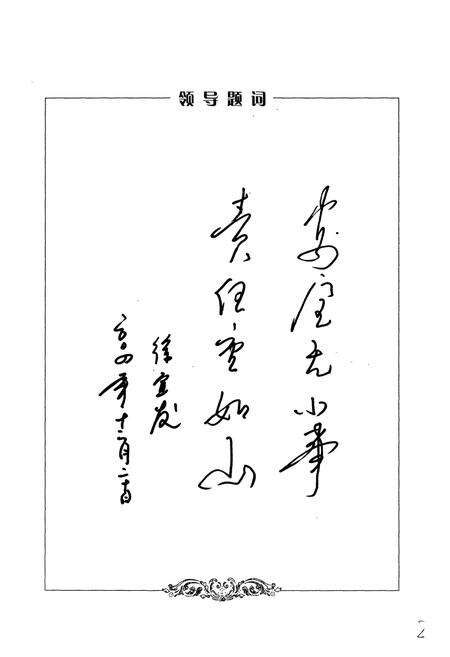 领导题词
安全无小事
责任重如山
徐宜发
二〇〇四年十二月二十日
2